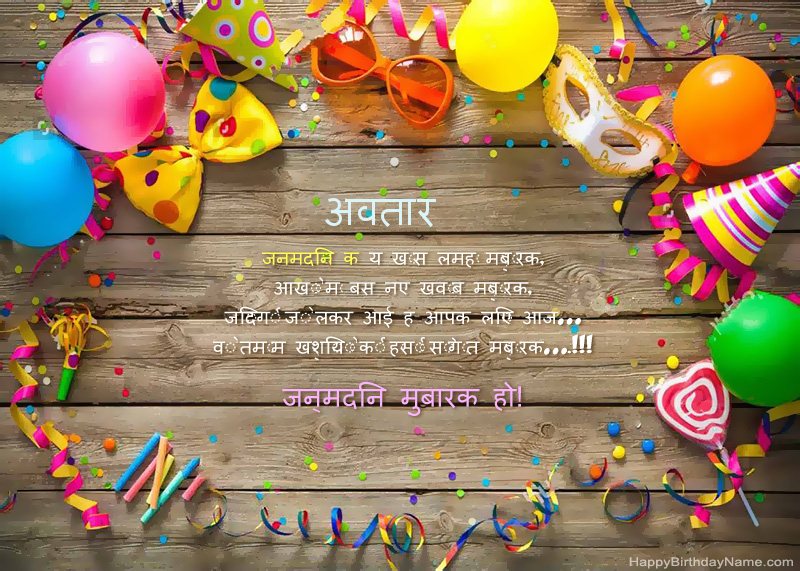 अवतार
जनमदनि क य खास लमहा मबारक,
आखोंम बस नए खवाब मबारक,
जदिगी जो लेकर आई ह आपक लएि आज...
वो तमाम खशयिों की हसीं सौगात मबारक...!!!
जन्मदनि मुबारक हो!
HappyBirthdayName.com